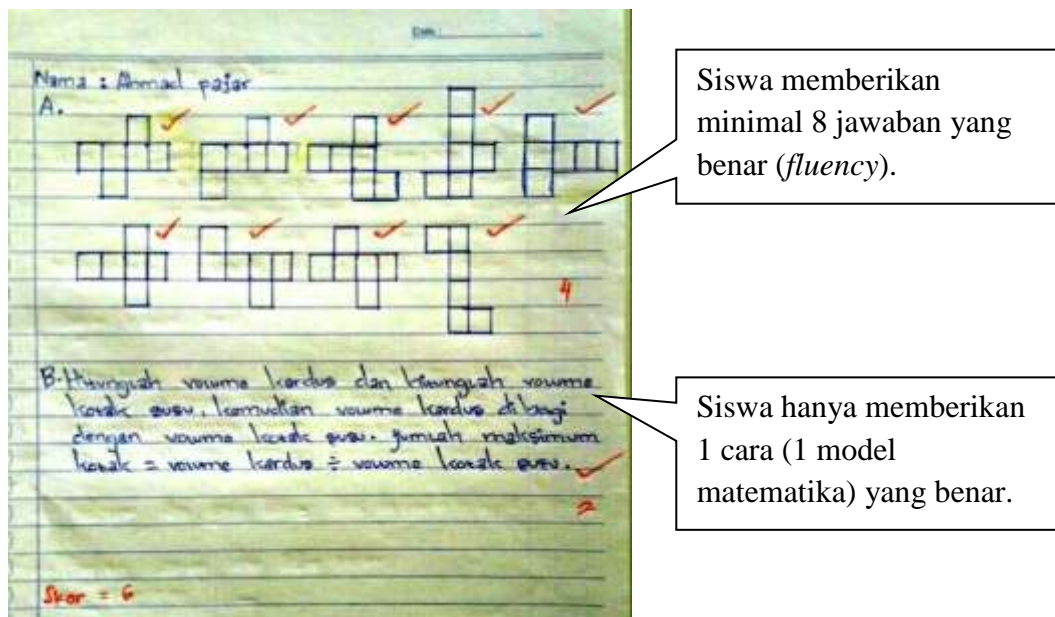 Nama : Ahmad pajar
A.
4
B. Hitunglah volume kardus dan hitunglah volume
kotak susu. kemudian volume kardus dibagi
dengan volume kotak susu. jumlah maksimum
kotak = volume kardus ÷ volume kotak susu.
2
Skor = 6
Siswa memberikan
minimal 8 jawaban yang
benar (fluency).
Siswa hanya memberikan
1 cara (1 model
matematika) yang benar.